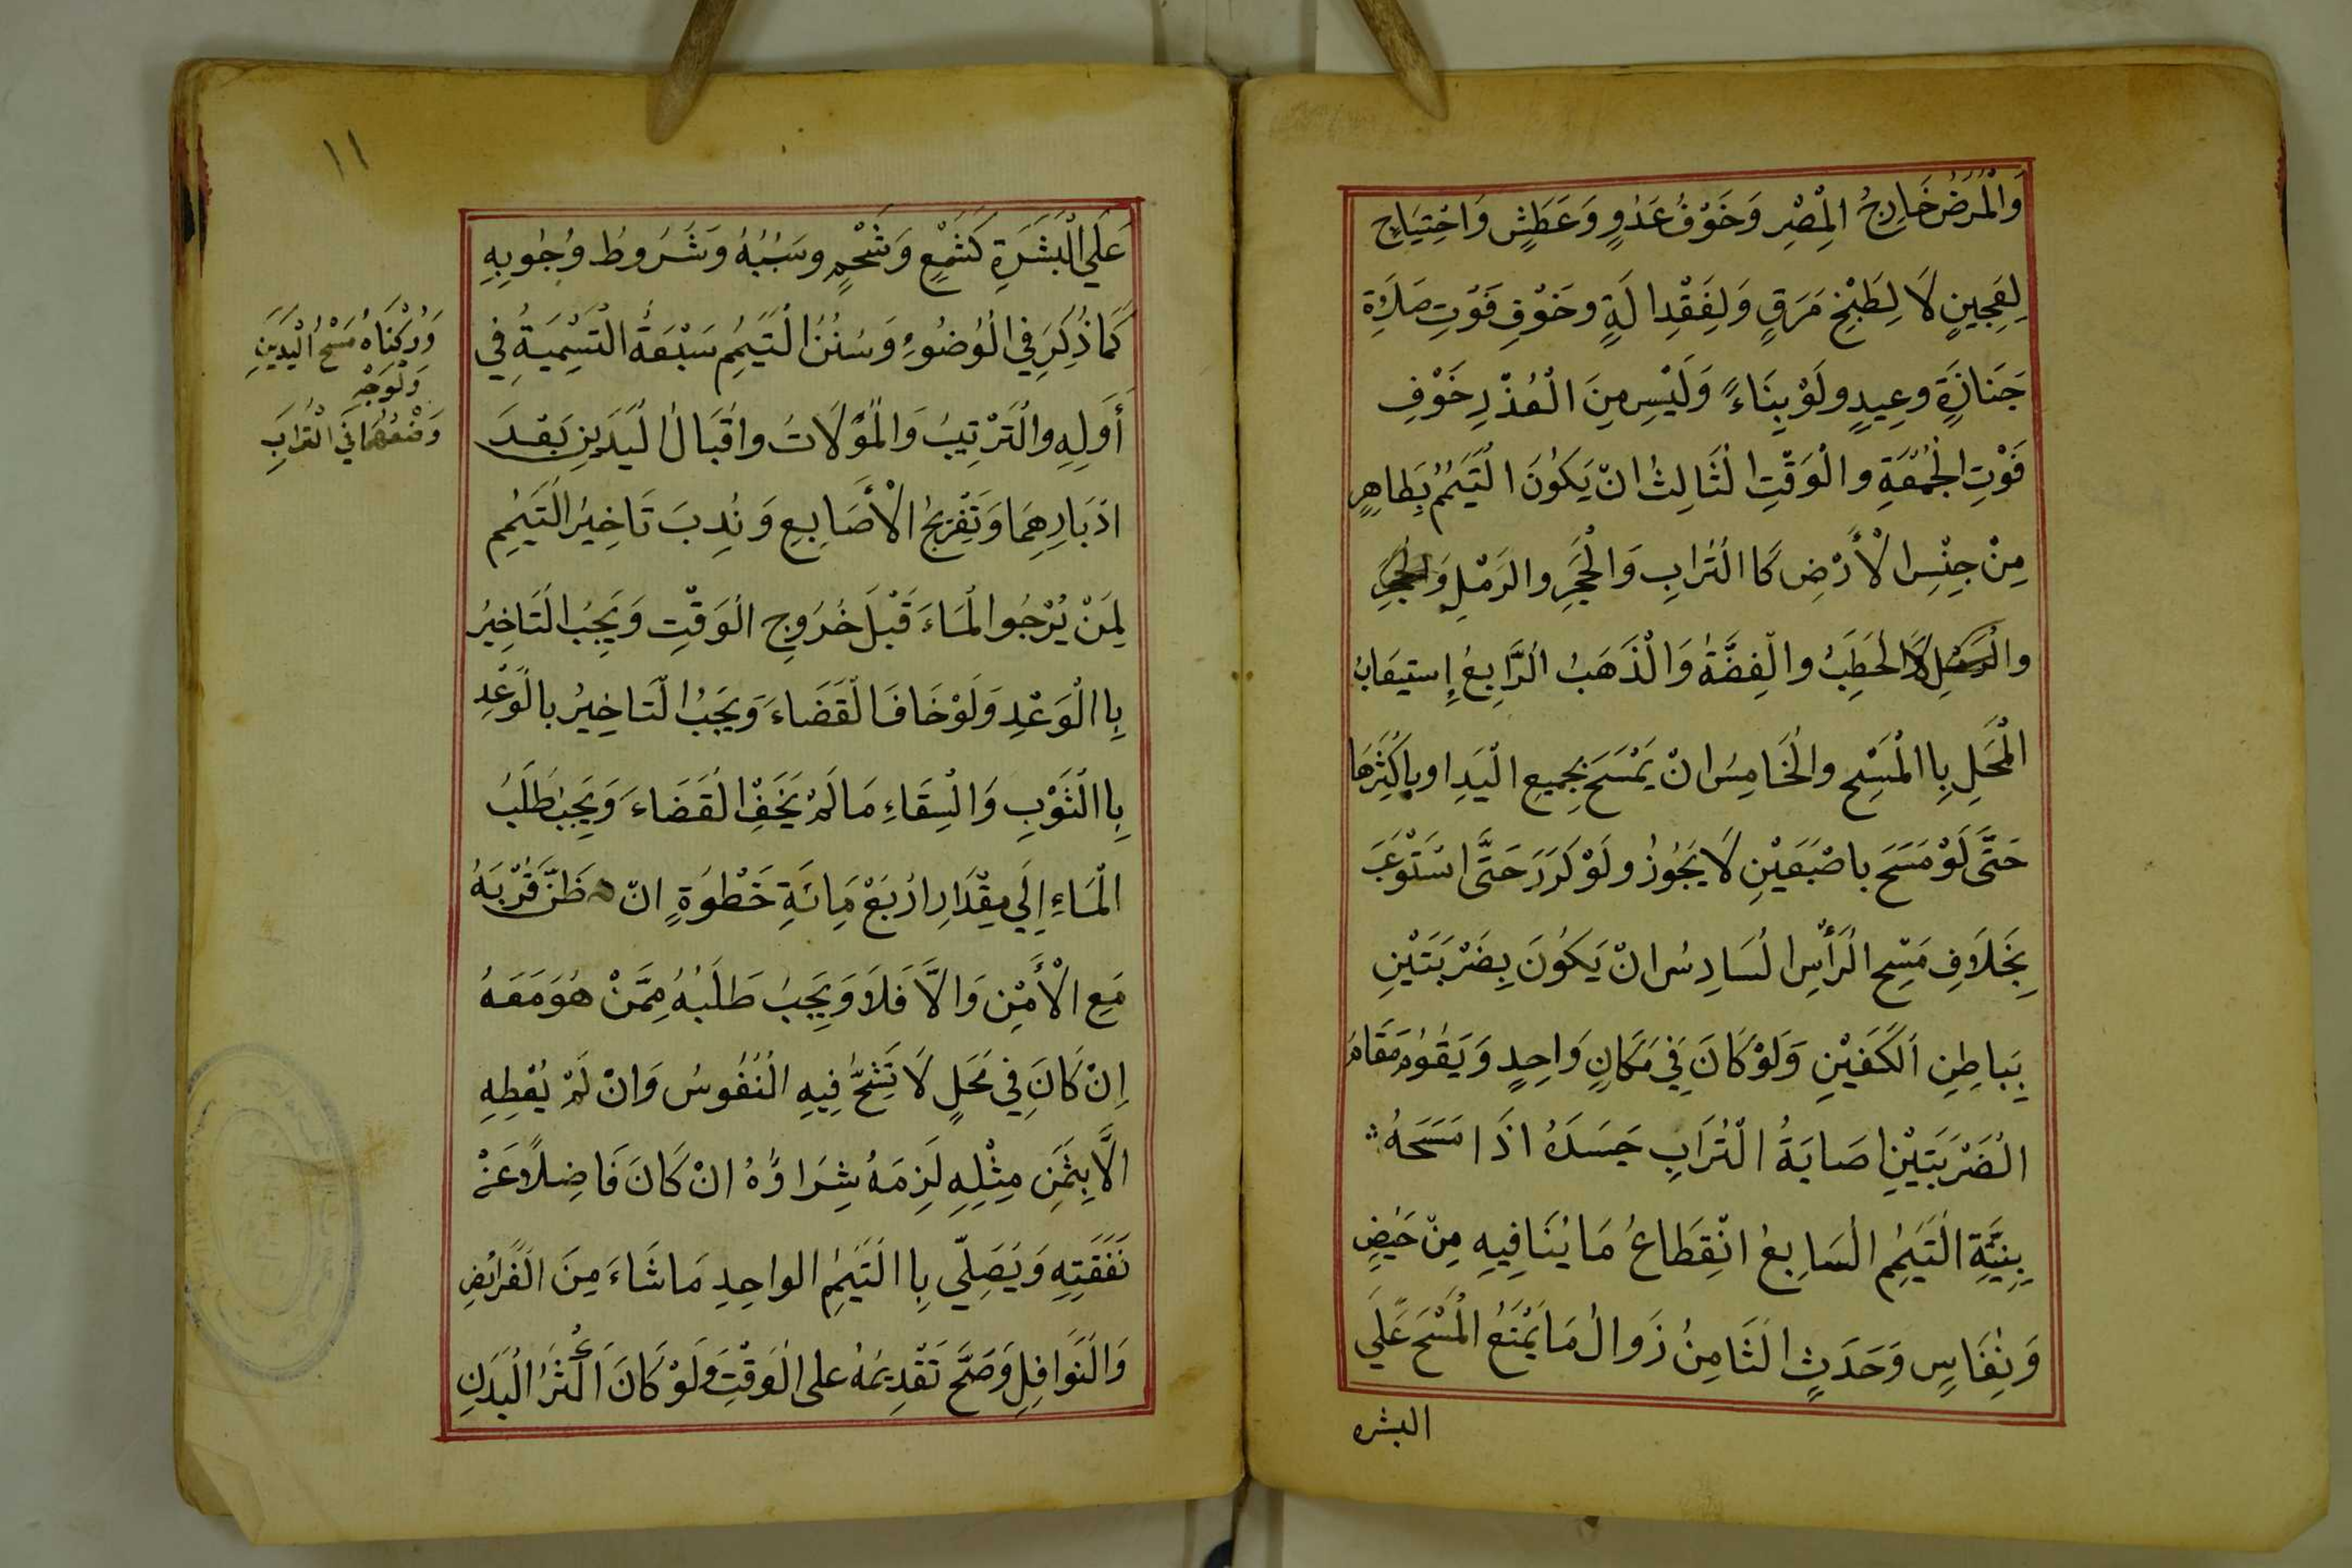 وَالْمَرَضُ خَارِجُ الْمِصْرِ وَخَوْفُ عَدُوٍ وَعَطَشٍ وَاحْتِيَاجٍ
لِعَجِينٍ لَا لِطَبْخِ مَرَقٍ وَلِفَقْدِ الَةٍ وخَوْفِ فَوْتِ صَلَاةِ
جَنَازَةٍ وعِيدٍ ولَوْ بِنَاءً وَلَيْسِ مِنَ الْعُذْرِ خَوْفِ
فَوْتِ الْجُمُعَةِ والْوَقْتِ الثَالِثُ انْ يَكُونَ التَيَمُمُ بِطَاهِرٍ
مِنْ جِنْسِ الْأَرْضِ كَا التُرَابِ وَالْحَجَرِ والرَمْلِ
لَا الْحَطَبُ والْفِضَّةُ وَالْذَهَبُ الرَّابِعُ إِستيعَابُ
الْمَحَلِ بِا الْمَسْحِ والْخَامِسُ انْ يَمْسَحَ بِجَمِيعِ الْيَدِ اوبِاكْثَرِهَا
حَتَّى لَوْ مَسَحَ باصْبَعَيْنِ لَا يَجُوزُ ولَوْ كَرَرَ حَتَّى اسْتَوْعَبَ
بِخَلَافِ مَسْحِ الرَأْسِ السَادِسُ انْ يَكُونَ بِضَرْبَتَيْنِ
بِبَاطِنِ الكَفَيْنِ وَلَوْ كَانَ فِي مَكَانٍ وَاحِدٍ وَيَقُومُ مَقَامَ
الْضَرْبَتَيْنِ اصَابَةُ الْتُرَابِ جَسَدَهُ اذَا مَسَحَهُ
بِنِيَّةِ التَيَمُمِ السَابِعُ انْقِطَاعُ مَا يُنَافِيهِ مِنْ حَيْضٍ
وَنِفَاسٍ وَحَدَثٍ الثَامِنُ زَوالُ مَا يَمْنَعُ الْمَسْحَ عَلَي
البشره
١١
عَلَي الْبَشَرَةِ كَشَمْعٍ وَشَحْمٍ وسَبَبُهُ وَشَرُوطُ وُجُوبِهِ
كَمَا ذُكِرَ فِي الْوُضُوءِ وَسُنَنُ التَيَمُمِ سَبْعَةُ التَسْمِيَةُ فِي
أَوَلِهِ والتَرْتِيبُ وَالْمُوَلَاتُ واقْبَالُ الْيَدَيْنِ بَعْدَ
ادْبَارِهِمَا وَتَفْرِيجُ الْأَصَابِعِ وَنُدِبَ تَاخِيرُ التَيَمُمِ
لِمَنْ يُرْجُوا الْمَاءَ قَبْلَ خُرَوجِ الْوَقْتِ وَيَجِبُ التَاخِيرُ
بِا الْوَعْدِ وَلَوْ خَافَ الْقَضَاءَ وَيَجِبُ التَاخِيرُ بالْوَعْدِ
بِا الثَوْبِ وَالْسِقَاءِ مَا لَمْ يَخَفِ الْقَضَاءَ وَيَجِبُ طَلَبُ
الْمَاءِ اِلَي مِقْدَارِ ارْبَعْ مِائَةِ خَطْوَةٍ انْ ظَنَّ قُرْبَهُ
مَعِ الْأَمْنِ وَالَّا فَلَا وَيَجِبُ طَلَبُهُ مِمَّنْ هُوَ مَعَهُ
اِنْ كَانَ فِي مَحَلٍ لَا تَشِحُّ فِيهِ الْنُفُوسُ وَانْ لَمْ يُعْطِهِ
الَّا بِثَمَنِ مِثْلِهِ لَزِمَهُ شِرَاؤُهُ انْ كَانَ فَاضِلًا عَنْ
نَفَقَتِهِ وَيُصَلِّي بِا التَيَمُمِ الواحِدِ مَا شَاءَ مِنَ الْفَرَائِضِ
وَالنَوَافِلِ وَصَحَّ تَقْدِيمُهُ على الْوَقْتِ وَلَوْ كَانَ اَكْثَرُ الْبَدَنِ
وَرُكْنَاهُ مَسْحُ الْيَدَيْنِ
وَلْوَجْهِ
وَضْعُهُمَا فِي التُرَابِ